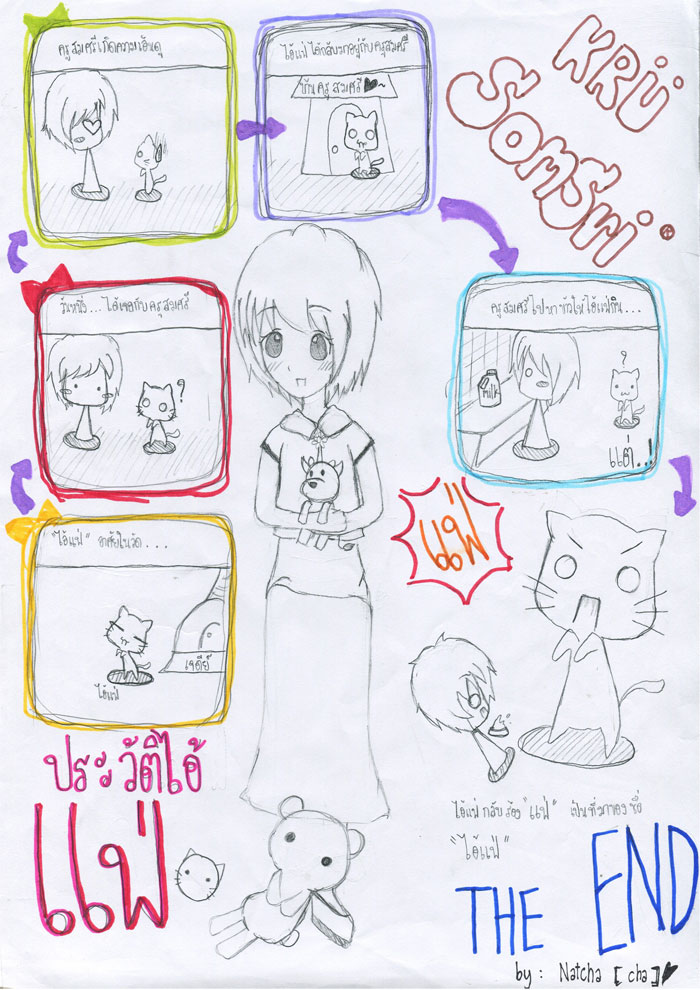 ประวัติไอ้
แฟ่
"ไอ้แฟ่" อาศัยในวัด....
เจดีย์
ไอ้แฟ่
วันหนึ่ง... ได้เจอกับครูสมศรี
?
ครูสมศรีเกิดความเอ็นดู
ไอ้แฟ่ ได้กลับมาอยู่กับครูสมศรี
บ้านครูสมศรี♥~
KRÜ
SOMSri
ครูสมศรีไปหาข้าวให้ไอ้แฟ่กิน...
milk
?
แต่..!
แฟ่
ไอ้แฟ่ กลับร้อง "แฟ่" เป็นที่มาของ ชื่อ
"ไอ้แฟ่"
THE END
by : Natcha [cha]♥